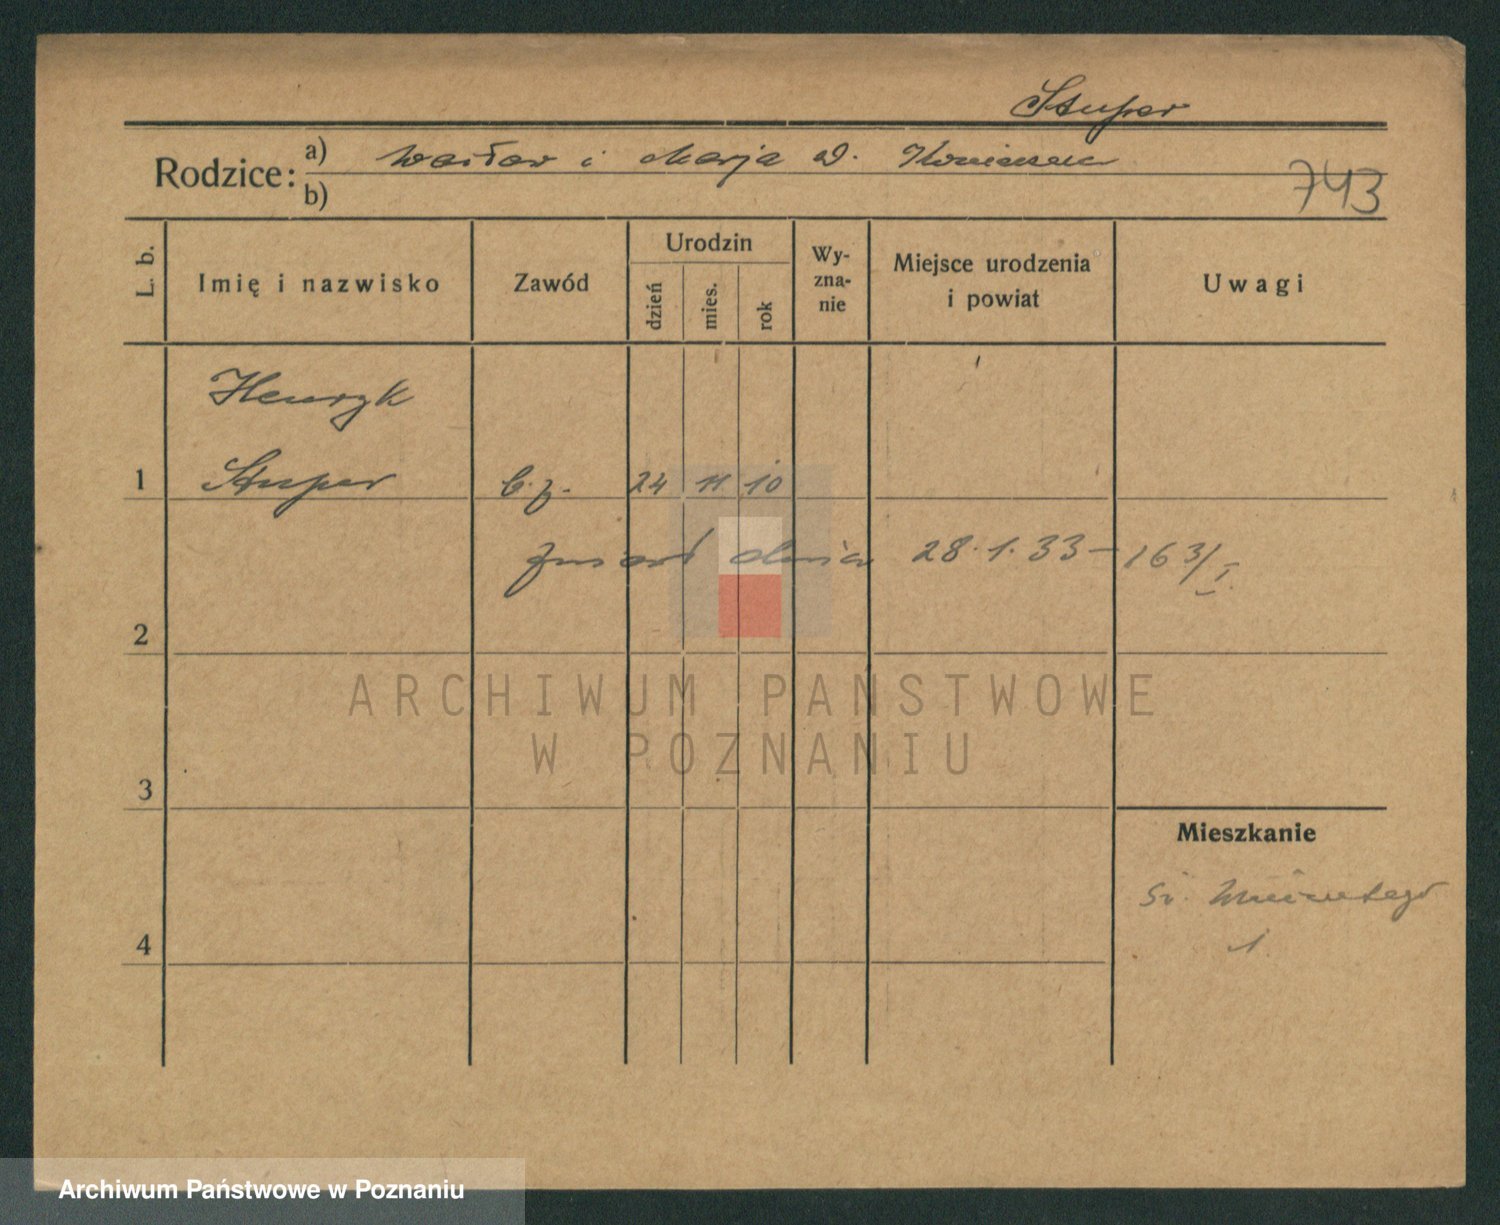 Stuper
Rodzice: a) Wacław i Marja d.
b)
743
L. b.
Imię i nazwisko
Zawód
Urodzin
dzień
mies.
rok
Wy-
zna-
nie
Miejsce urodzenia
i powiat
Uwagi
Henryk
1 Stuper b. z. 24 11 10
zmarł dnia 28. 1. 33 – 163/I.
2
ARCHIWUM PAŃSTWOWE
W POZNANIU
3
Mieszkanie
Św. Wincentego
4
1.
Archiwum Państwowe w Poznaniu